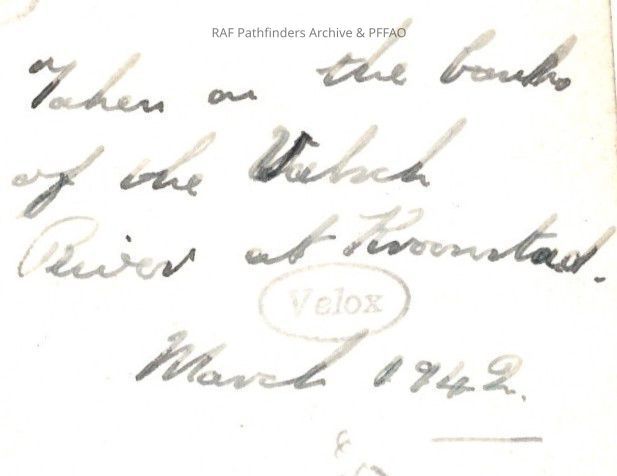 RAF Pathfinders Archive & PFFAO
Taken on the banks
of the Valsch
River at Kroonstad.
Velox
March 1942.